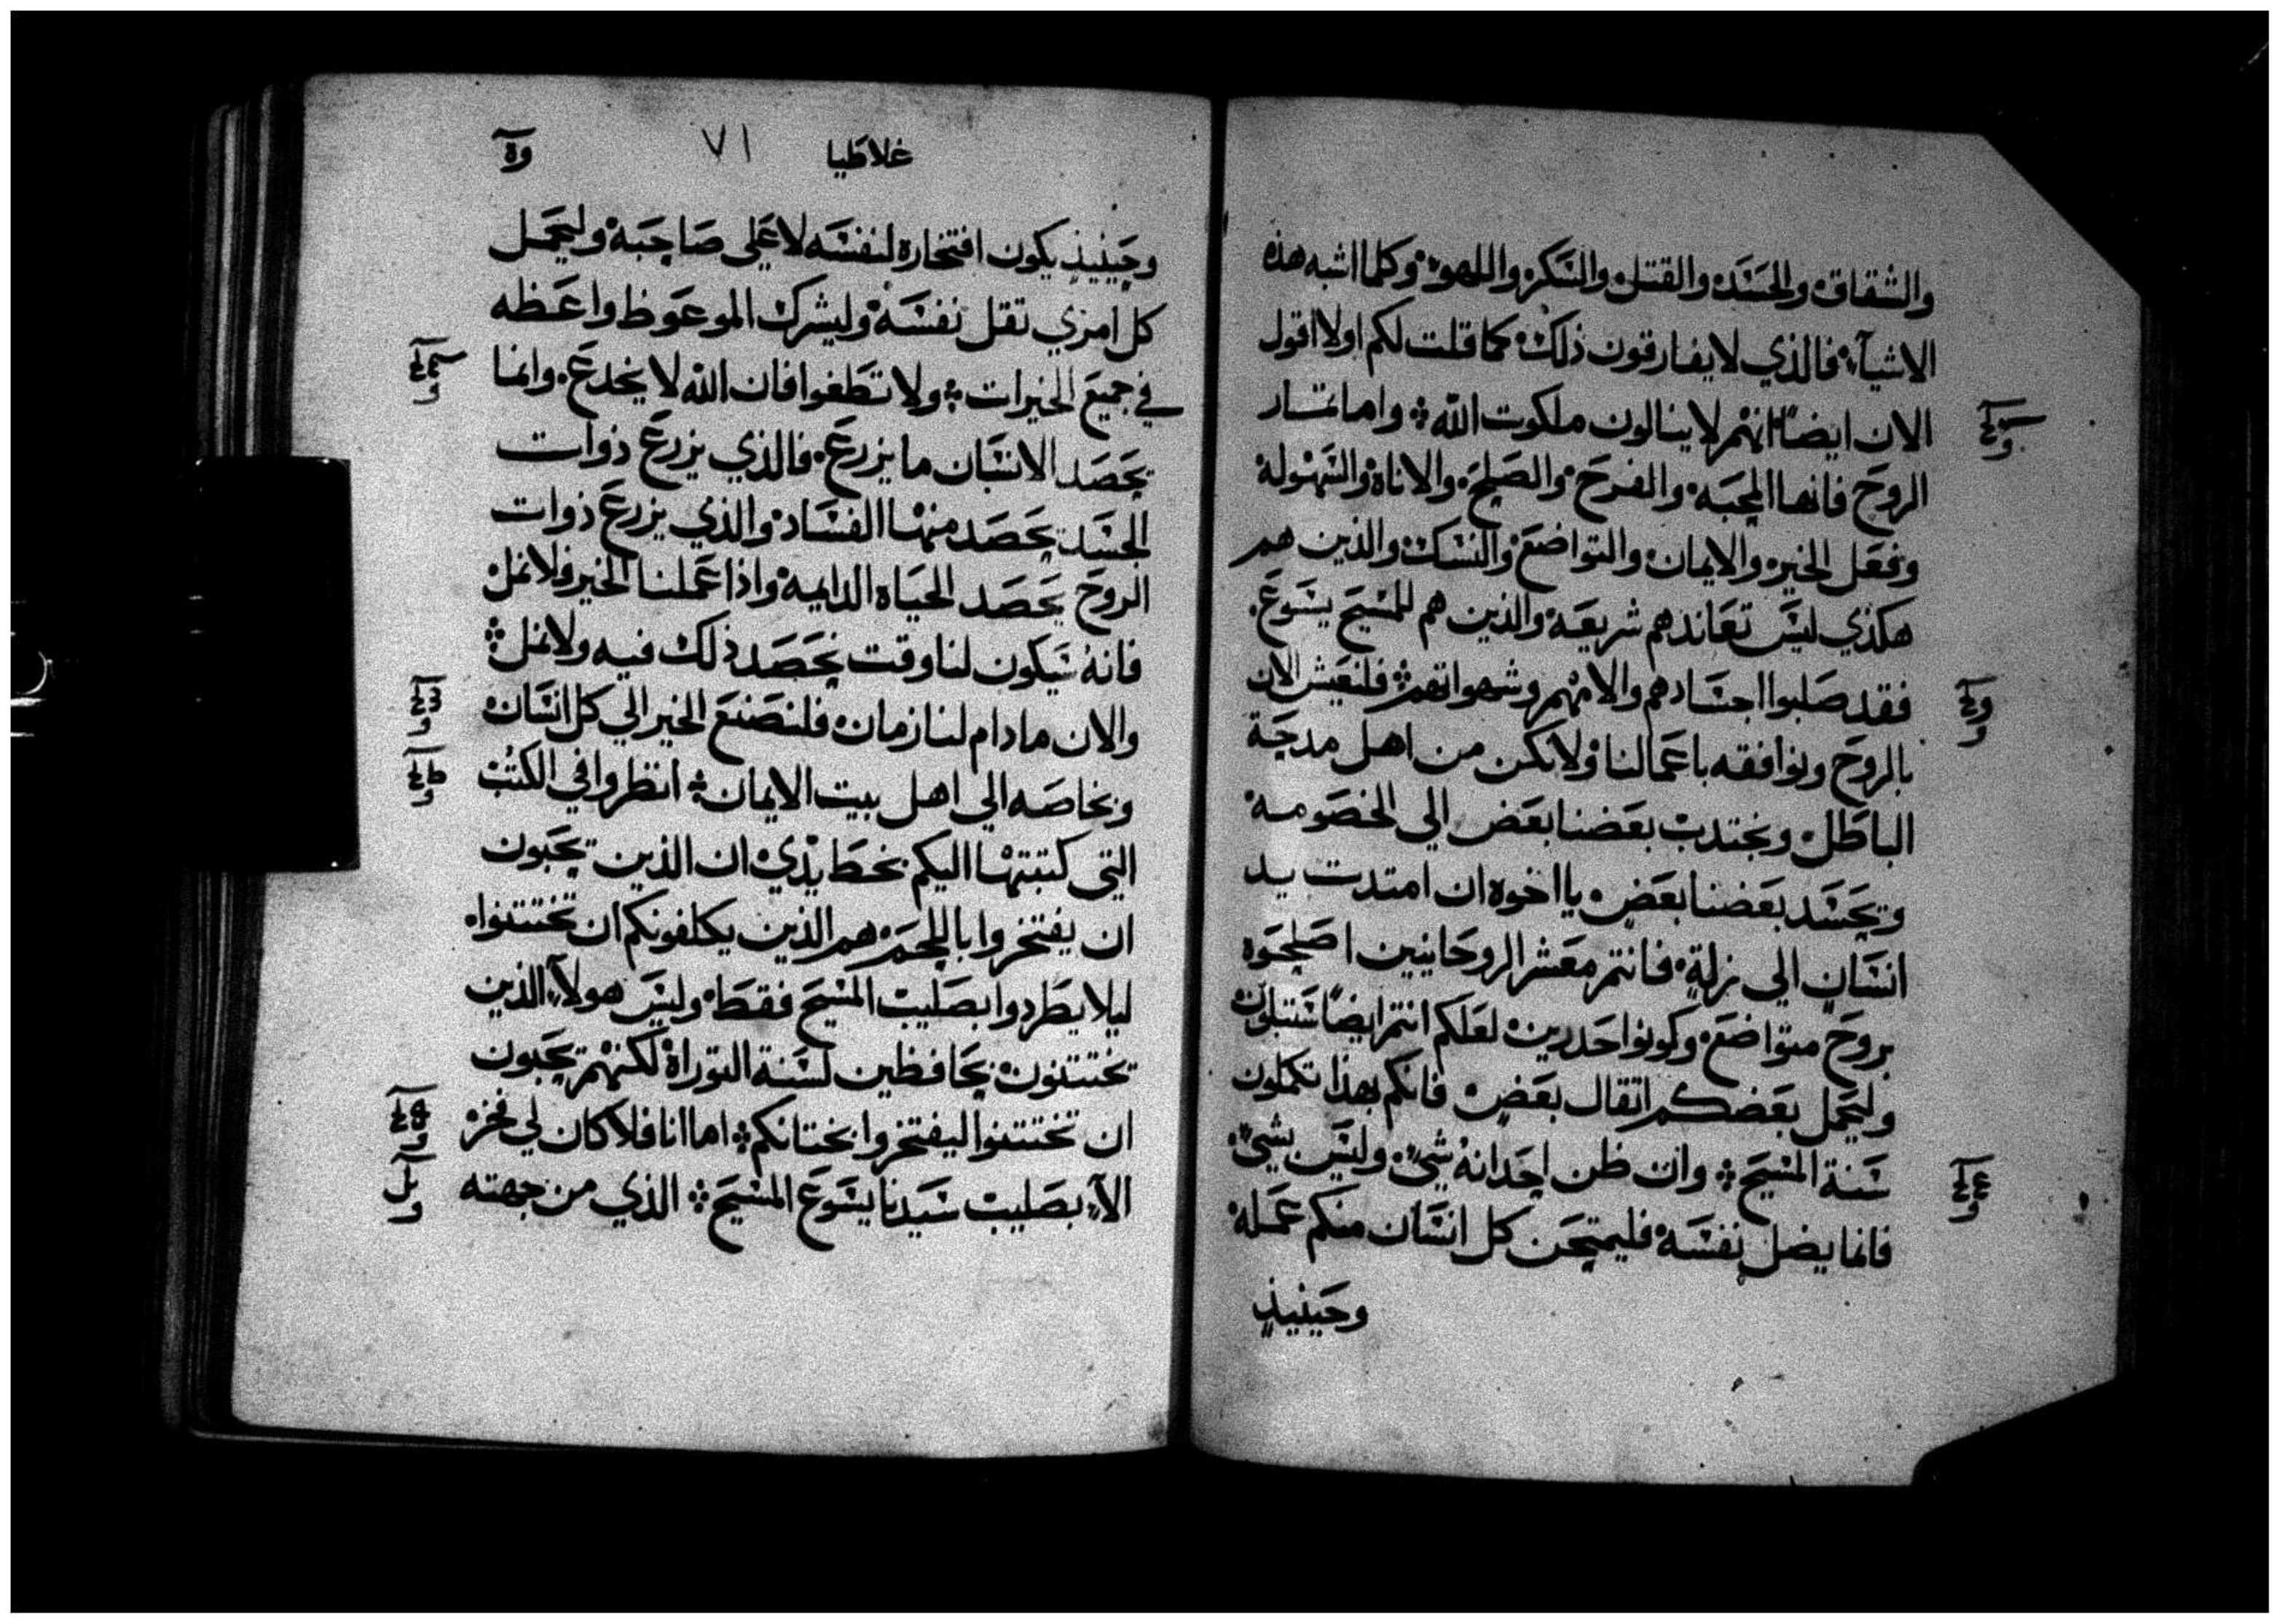 والشقاق والحسد والقتل والسكر واللهو وكلما اشبه هذه
الاشيآء فالذي لا يفارقون ذلك كما قلت لكم اولا اقول
الان ايضًا انهم لا ينالون ملكوت الله واما ثمار
الروح فانها المحبة والفرح والصلح والاناة والسهولة
وفعل الخير والايمان والتواضع والنسك والذين هم
هكذي ليس تعاندهم شريعة والذين هم للمسيح يسوع
فقد صلبوا اجسادهم والامهم وشهواتهم فلنعيش الان
بالروح ونوافقه باعمالنا ولا نكن من اهل مدحة
الباطل ونجتذب بعضنا بعض الي الخصومة
ونحسد بعضنا بعض يا اخوة ان امتدت يد
انسان الي زلة فانتم معشر الروحانيين اصلحوه
بروح متواضع وكونوا حذرين لعلكم انتم ايضًا ستبلون
وليحمل بعضكم اثقال بعض فانكم بهذا تكملون
سنة المسيح وان ظن احد انه شي وليس بشي
فانما يضل نفسه فليمتحن كل انسان منكم عمله
وحينيذ
غلاطيا ٧١
وحينيذ يكون افتخاره لنفسه لا علي صاحبه وليحمل
كل امرئ ثقل نفسه وليشرك الموعوظ واعظه
في جميع الخيرات ولا تطغوا فان الله لا يخدع وانما
يحصد الانسان ما يزرع فالذي يزرع ذوات
الجسد يحصد منها الفساد والذي يزرع ذوات
الروح يحصد الحياه الدايمة واذا عملنا الخير فلا نمل
فانه سيكون لنا وقت نحصد ذلك فيه ولا نمل
والان ما دام لنا زمان فلنصنع الخير الي كل انسان
وبخاصه الي اهل بيت الايمان انظروا في الكتب
التي كتبتها اليكم بخط يدي ان الذين يحبون
ان يفتخروا باللحم هم الذين يكلفونكم ان تختتنوا
ليلا يطردوا بصليب المسيح فقط وليس هولآء الذين
يختتنون بحافظين لسنة التوراة لكنهم يحبون
ان تختتنوا ليفتخروا بختانكم اما انا فلا كان لي فخر
الآ بصليب سيدنا يسوع المسيح الذي من جهته